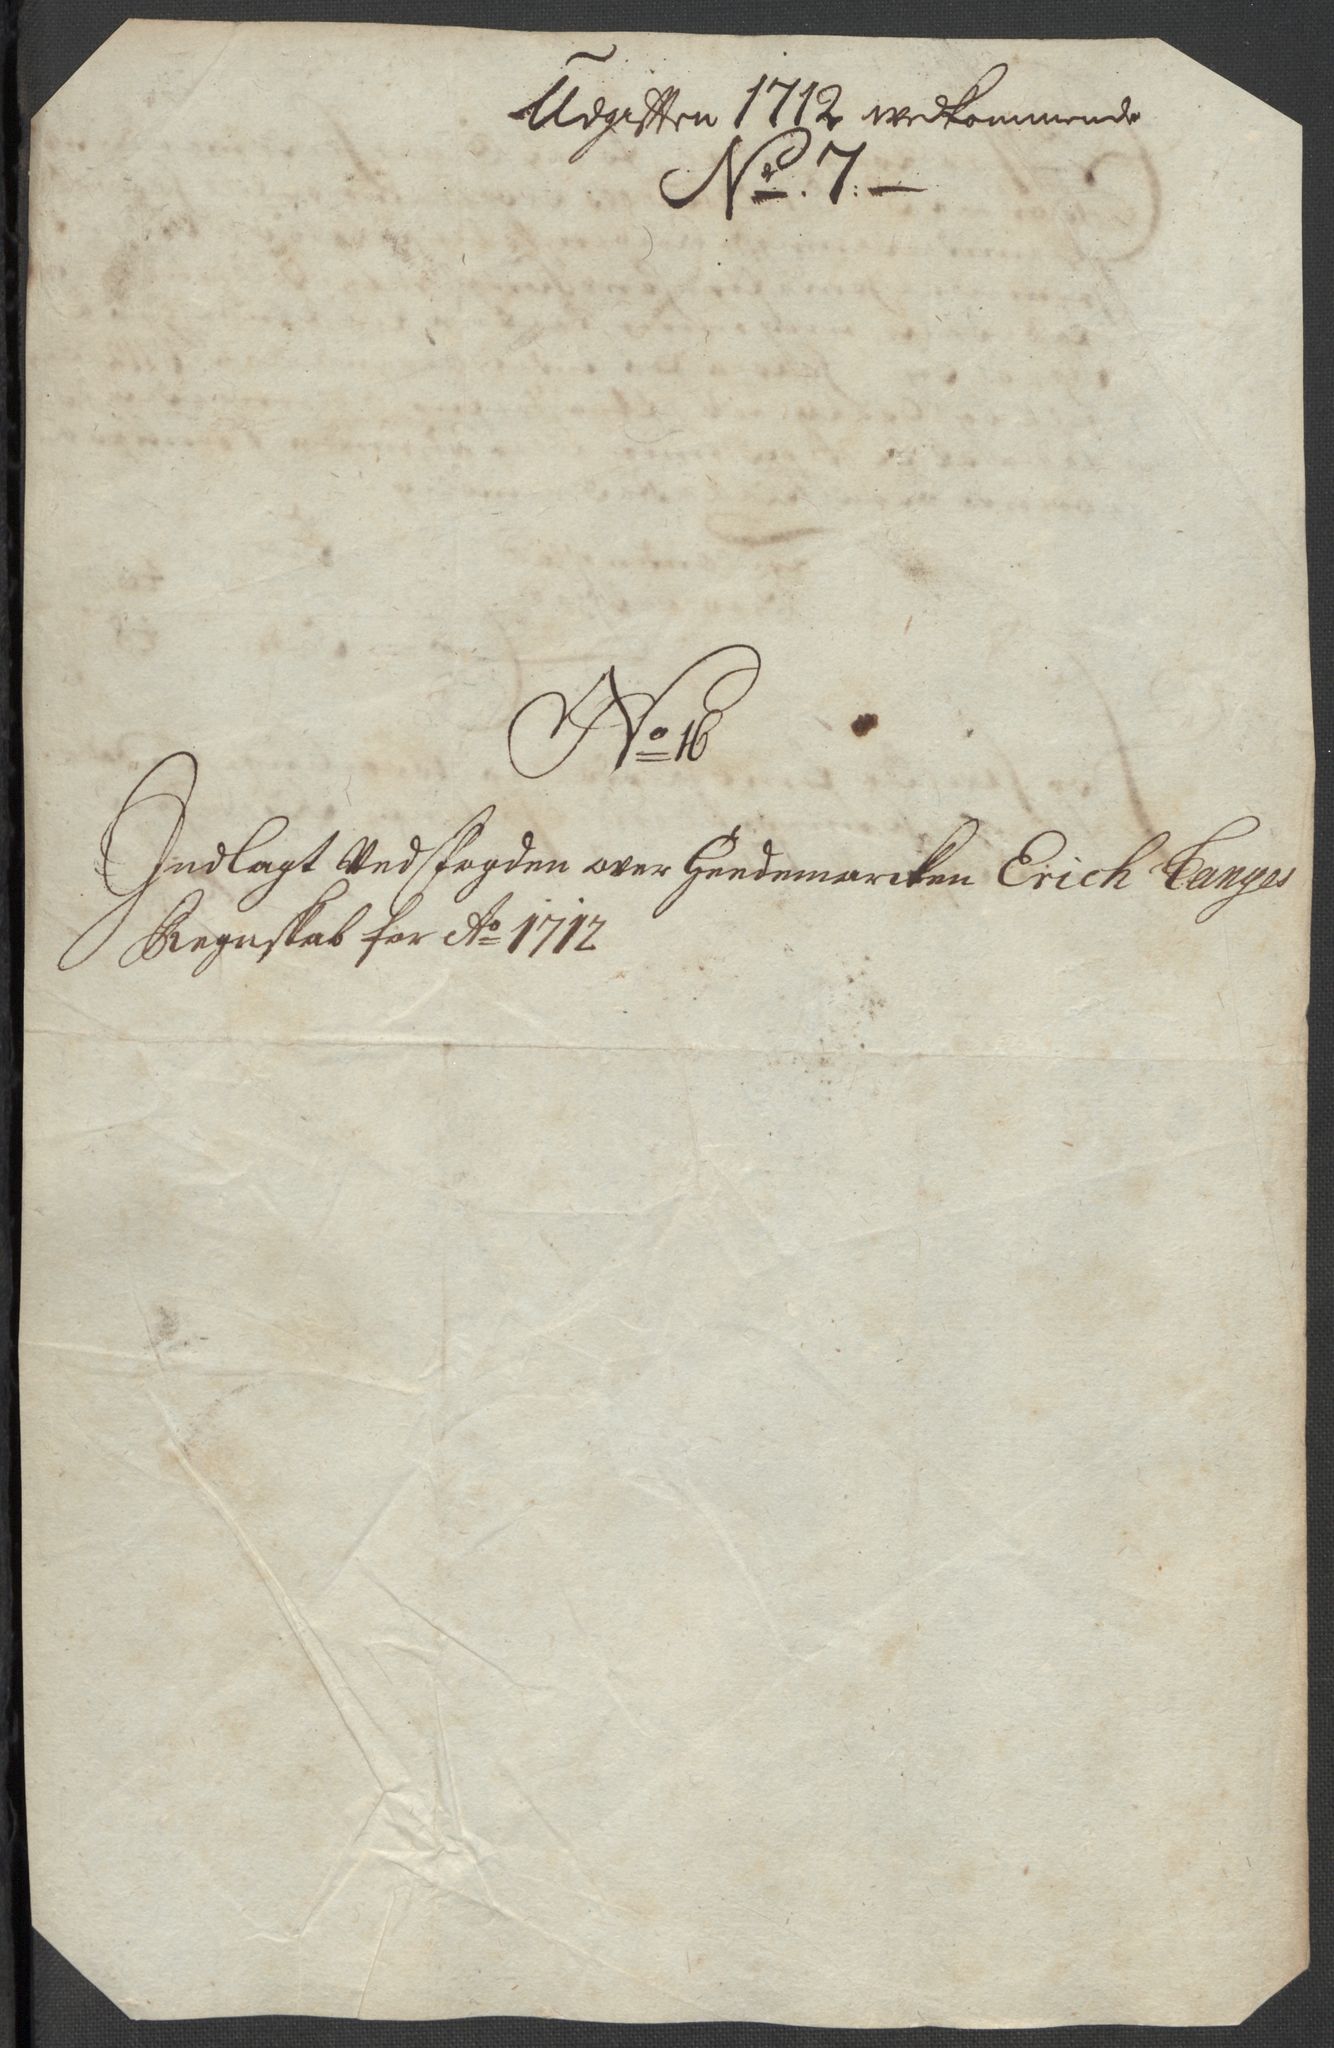 Udgifften 1712 vedkommende
No. 7. —
No 16
Indlagt Ved fogden over Heedemarcken Erich Langes
Regnskab for Ao 1712